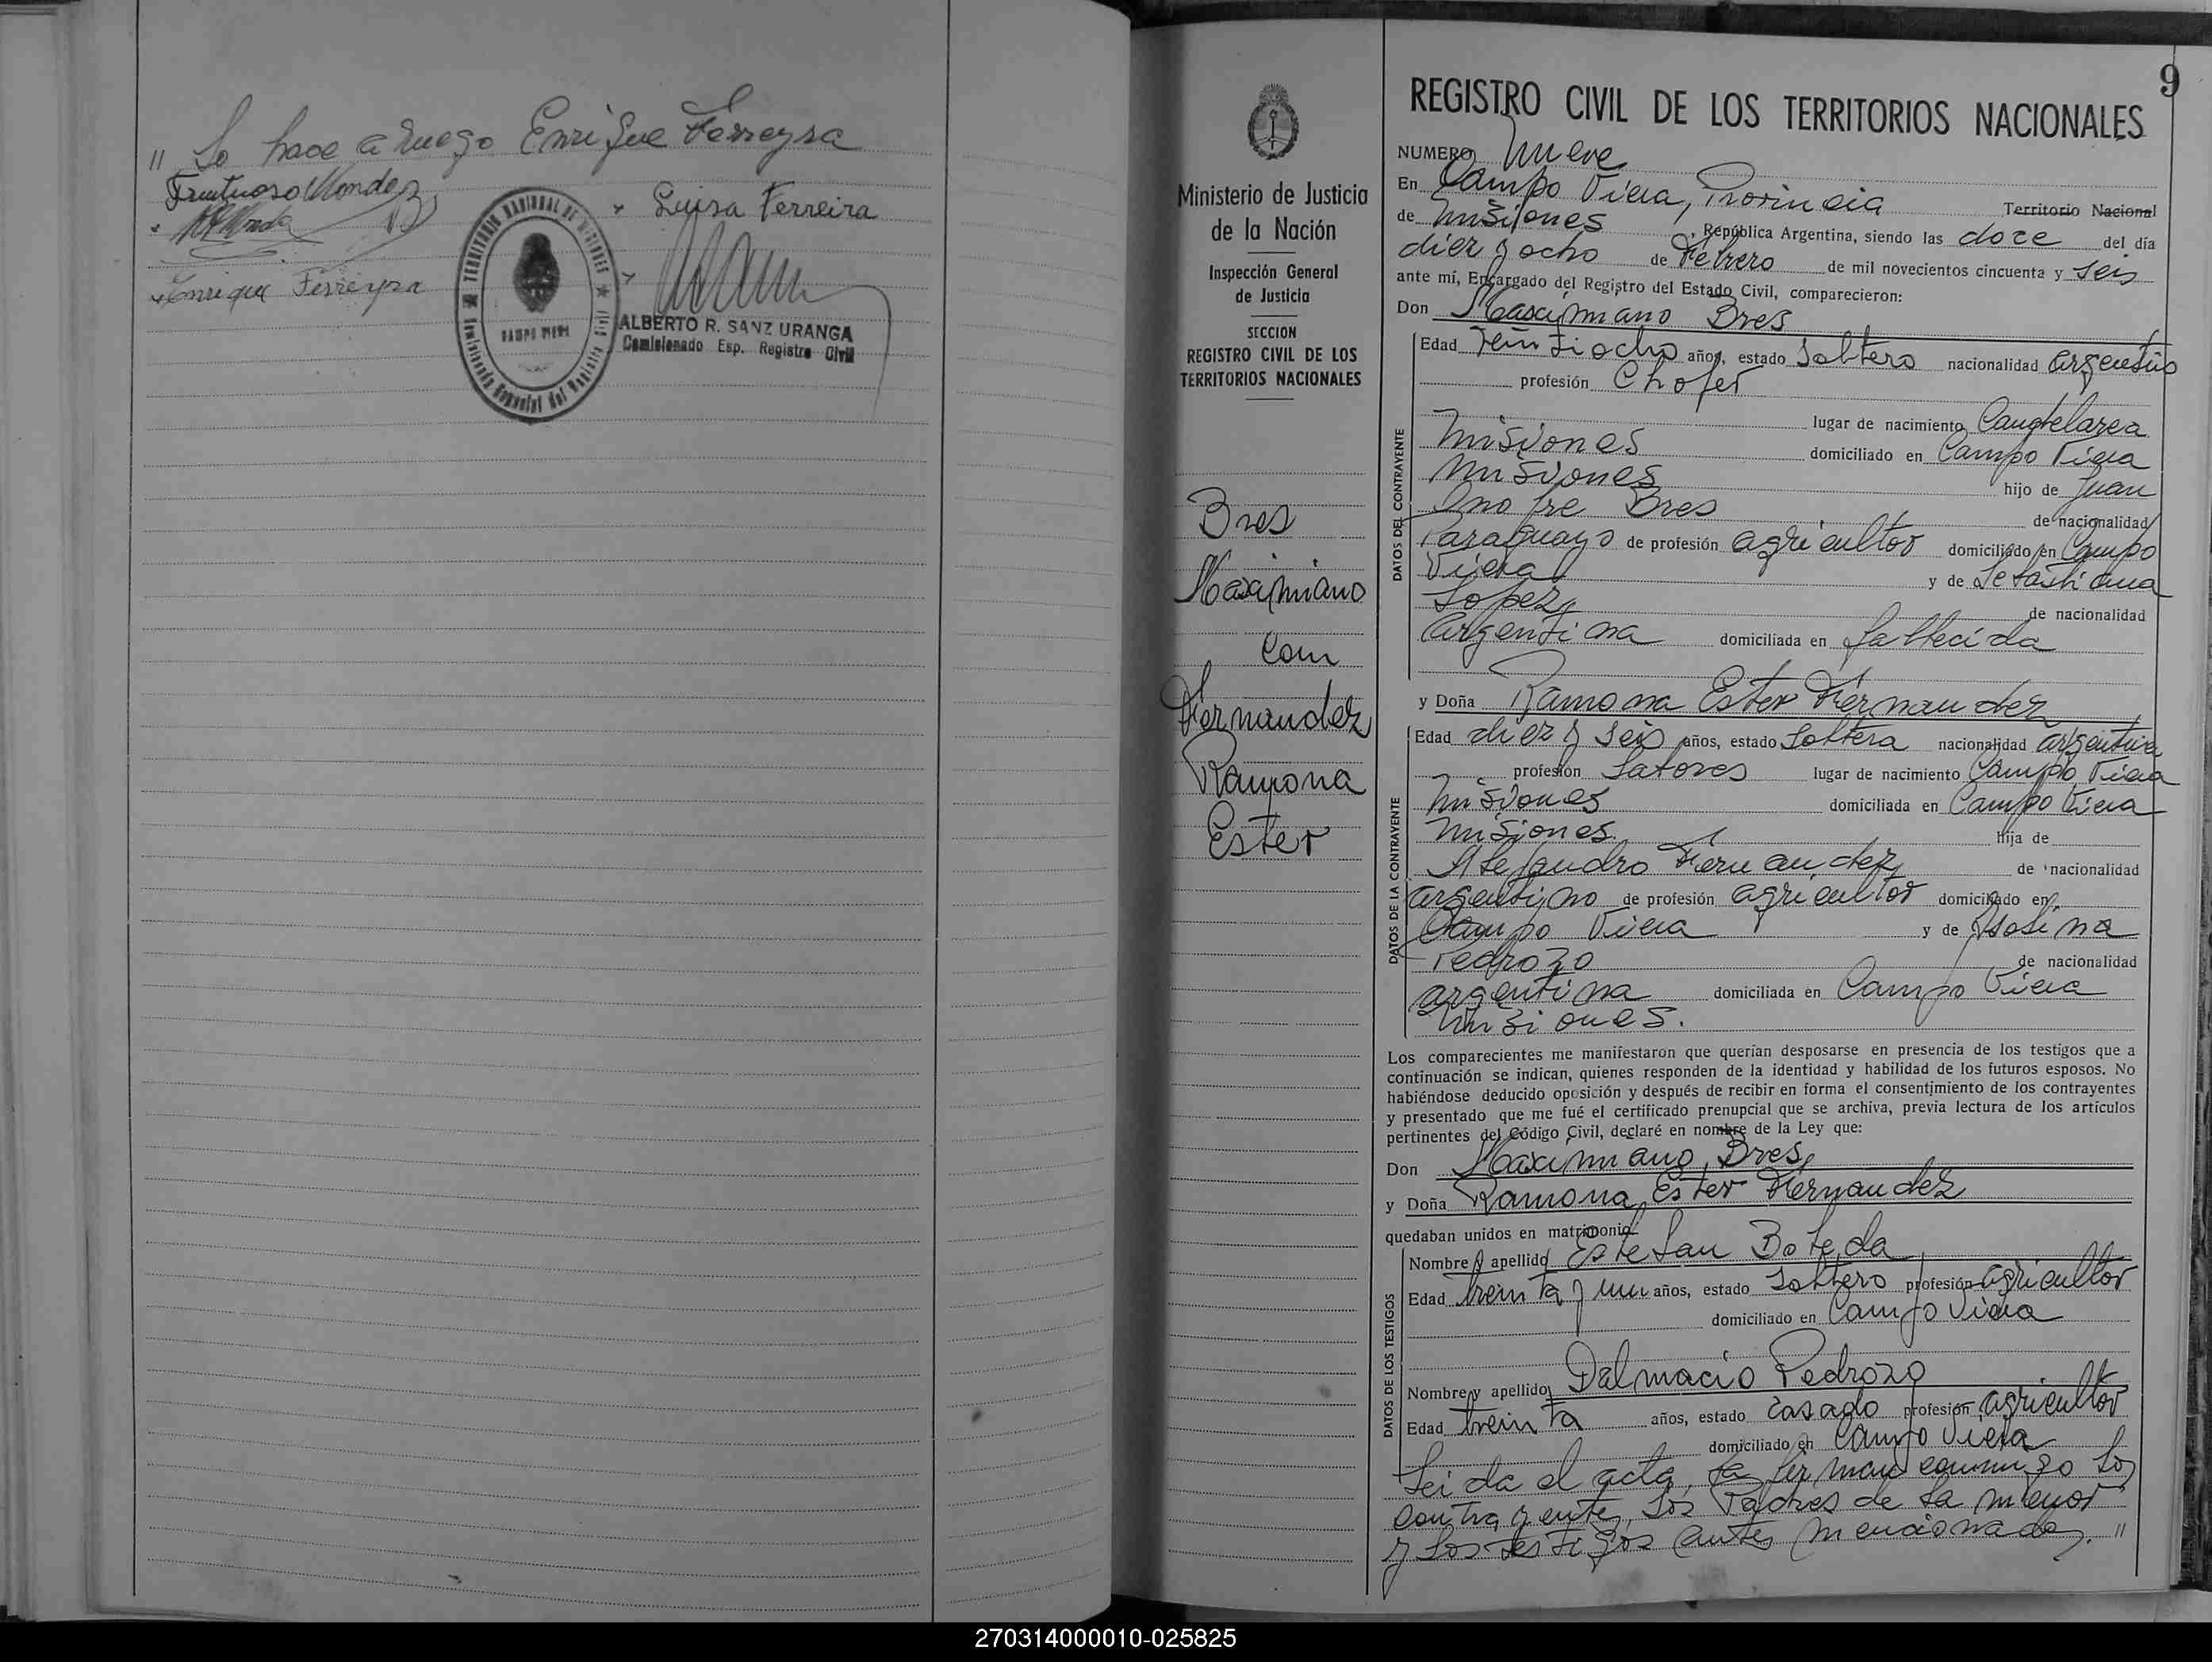 " Lo hace a ruego Enrique Ferreyra
Frutuoso Mendez
Luisa Ferreira
Enrique Ferreyra
TERRITORIO NACIONAL DE MISIONES
CAMPO VIERA
ALBERTO R. SANZ URANGA
Comisionado Esp. Registro Civil
Ministerio de Justicia
de la Nación
Inspección General
de Justicia
SECCION
REGISTRO CIVIL DE LOS
TERRITORIOS NACIONALES
Bres
Maximiano
con
Fernandez
Ramona
Ester
9
REGISTRO CIVIL DE LOS TERRITORIOS NACIONALES
NUMERO nueve
En Campo Viera, Provincia Territorio Nacional
de Misiones, República Argentina, siendo las doce del día
diez y ocho de Febrero de mil novecientos cincuenta y seis
ante mí, Encargado del Registro del Estado Civil, comparecieron:
Don Maximiano Bres
DATOS DEL CONTRAYENTE
Edad veintiocho años, estado soltero nacionalidad argentino
profesión Chofer
lugar de nacimiento Candelarea
Misiones domiciliado en Campo Viera
Misiones hijo de Juan
Onofre Bres de nacionalidad
Paraguayo de profesión agricultor domiciliado en Campo
Viera y de Sebastiana
Lopez de nacionalidad
argentina domiciliada en fallecida
y Doña Ramona Ester Fernandez
DATOS DE LA CONTRAYENTE
Edad diez y seis años, estado soltera nacionalidad argentina
profesión Labores lugar de nacimiento Campo Viera
Misiones domiciliada en Campo Viera
Misiones hija de
Alejandro Fernandez de nacionalidad
argentino de profesión agricultor domiciliado en
Campo Viera y de
Pedrozo de nacionalidad
argentina domiciliada en Campo Viera
Misiones.
Los comparecientes me manifestaron que querían desposarse en presencia de los testigos que a
continuación se indican, quienes responden de la identidad y habilidad de los futuros esposos. No
habiéndose deducido oposición y después de recibir en forma el consentimiento de los contrayentes
y presentado que me fué el certificado prenupcial que se archiva, previa lectura de los artículos
pertinentes del Código Civil, declaré en nombre de la Ley que:
Don Maximiano Bres
y Doña Ramona Ester Fernandez
quedaban unidos en matrimonio
DATOS DE LOS TESTIGOS
Nombre y apellido Esteban
Edad treinta y un años, estado soltero profesión agricultor
domiciliado en Campo Viera
Nombre y apellido Dalmacio Pedrozo
Edad treinta años, estado casado profesión agricultor
domiciliado en Campo Viera
Leida el acta, la firman conmigo los
contrayentes, los Padres de la menor
y los testigos antes mencionados. "
270314000010-025825